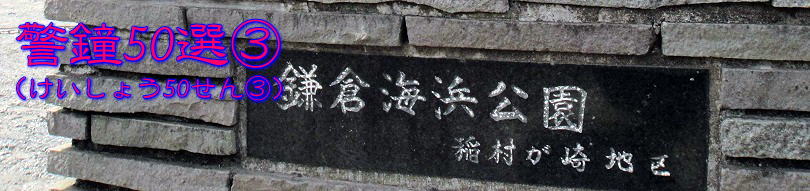 警鐘50選③
(けいしょう50せん③)
鎌倉海浜公園
稲村が崎地区